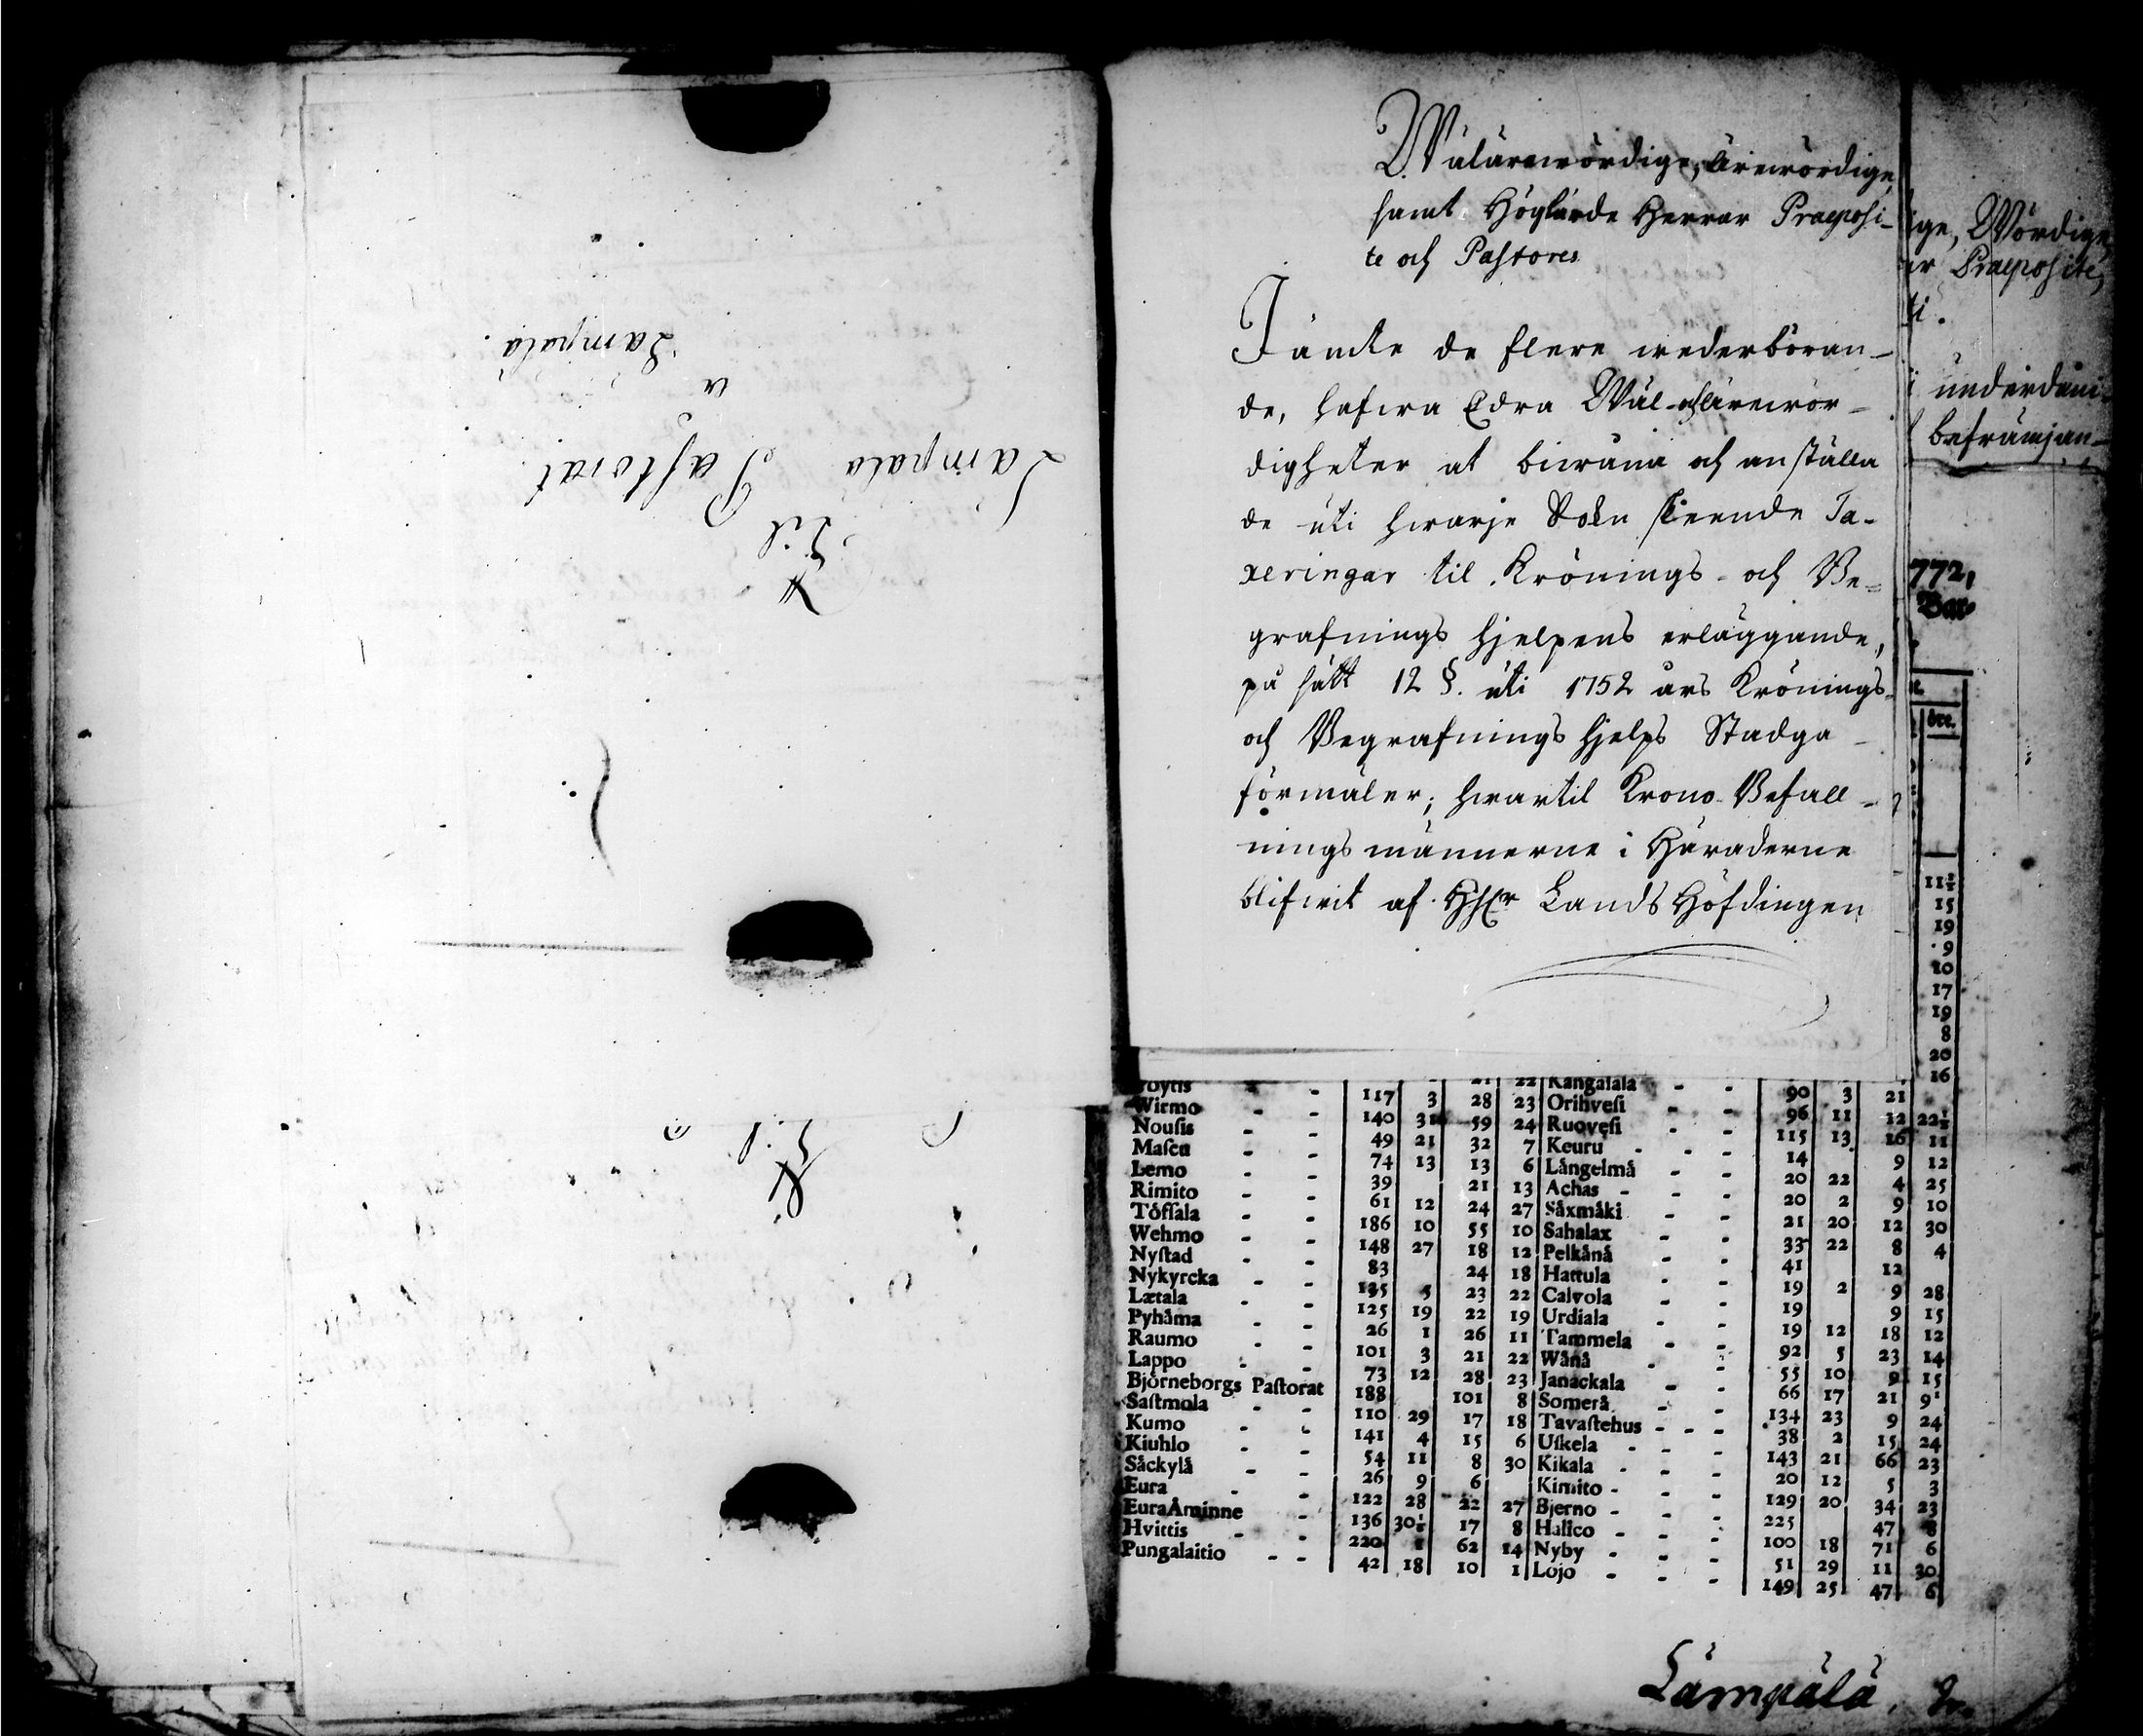 Til
Lampala Pastorat.
a
Lampala.
Til
Wälärewördige, Ärewördige,
samt Höglärde Herrar Praeposi-
te och Pastores
Jämte de flere wederböran-
de, hafwa Edra Wäl- och Ärewör-
digheter at biwara och anställa
de uti hwarje Sokn skeende Ta-
xeringar til Krönings- och Be-
grafnings hjelpens erläggande,
på sätt 12 §. uti 1752 års Krönings-
och Begrafnings hjelps Stadga
förmäler; hwartil Krono-Befall-
nings männerne i Häraderne
blifwit af HHr Lands Höfdingen
ige, Wördige,
er Praeposite,
ti.
i underdåni-
befrämjan-
772,
öre.
11½
15
19
9
10
17
19
8
20
16
21 22 Kangasala - - 90 3 21
Wirmo - - 117 3 28 23 Orihvesi - - 96 11 12 22½
Nousis - - 140 31 59 24 Ruovesi - - 115 13 16 11
Mascu - - 49 21 32 7 Keuru - - 14 9 12
Lemo - - 74 13 13 6 Långelmå - - 20 22 4 25
Rimito - - 39 21 13 Achas - - 20 2 9 10
Töfsala - - 61 12 24 27 Såxmåki - - 21 20 12 30
Wehmo - - 186 10 55 10 Sahalax - - 33 22 8 4
Nystad - - 148 27 18 12 Pelkånå - - 41 12
Nykyrcka - - 83 24 18 Hattula - - 19 2 9 28
Lætala - - 135 5 23 22 Calvola - - 19 9 15
Pyhåma - - 125 19 22 19 Urdiala - - 19 12 18 12
Raumo - - 26 1 26 11 Tammela - - 92 5 23 14
Lappo - - 101 3 21 22 Wånå - - 55 10 9 15
Björneborgs Pastorat 73 12 28 23 Janackala - - 66 17 21 9
Sastmola - - 188 101 8 Somerå - - 134 23 9 24
Kumo - - 110 29 17 18 Tavastehus - - - 38 2 15 24
Kiuhlo - - 141 4 15 6 Uskela - - - 143 21 66 23
Såckylå - - 54 11 8 30 Kikala - - - 20 12 5 3
Eura - - 26 9 6 Kimito - - - 129 20 34 23
EuraÅminne - 122 28 22 27 Bjerno - - - 225 47 8
Hvittis - - 136 30½ 17 8 Halico - - - 100 18 71 6
Pungalaitio - - 220 1 62 14 Nyby - - - 51 29 11 30
42 18 10 1 Lojo - - - 149 25 47 6
Lämpälä.